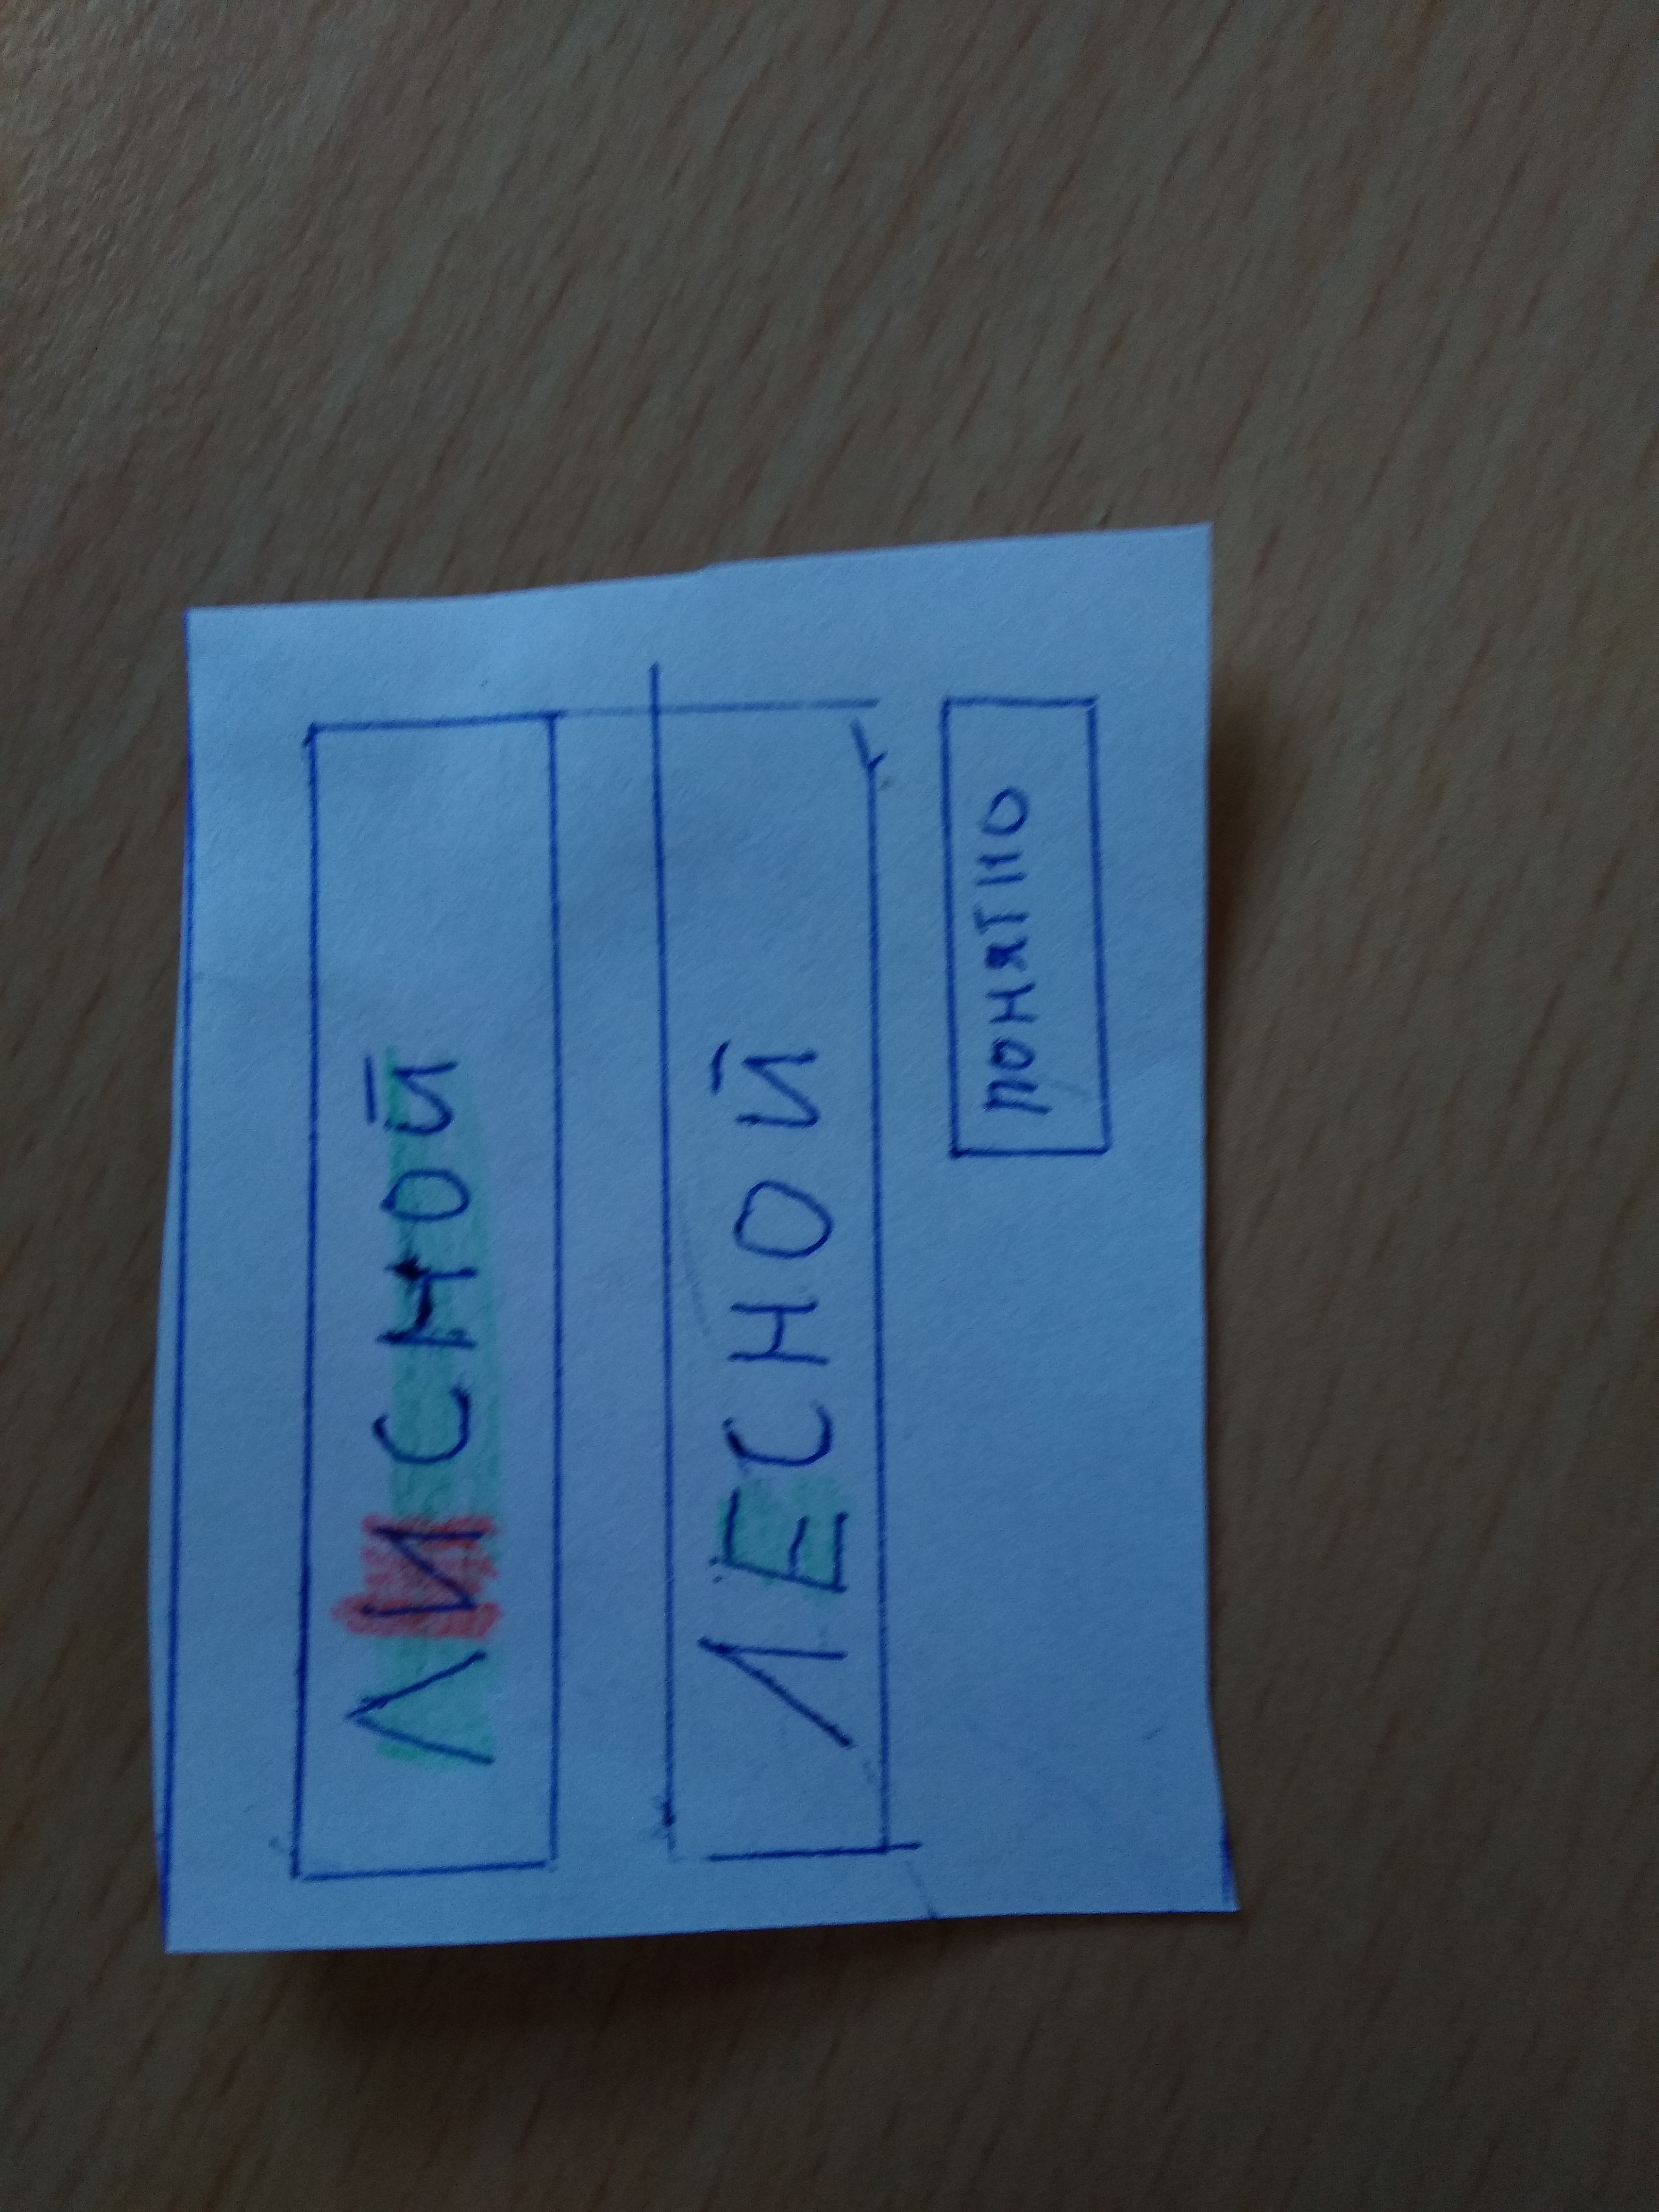 ЛИСНОЙ
ЛЕСНОЙ
ПОНЯТНО